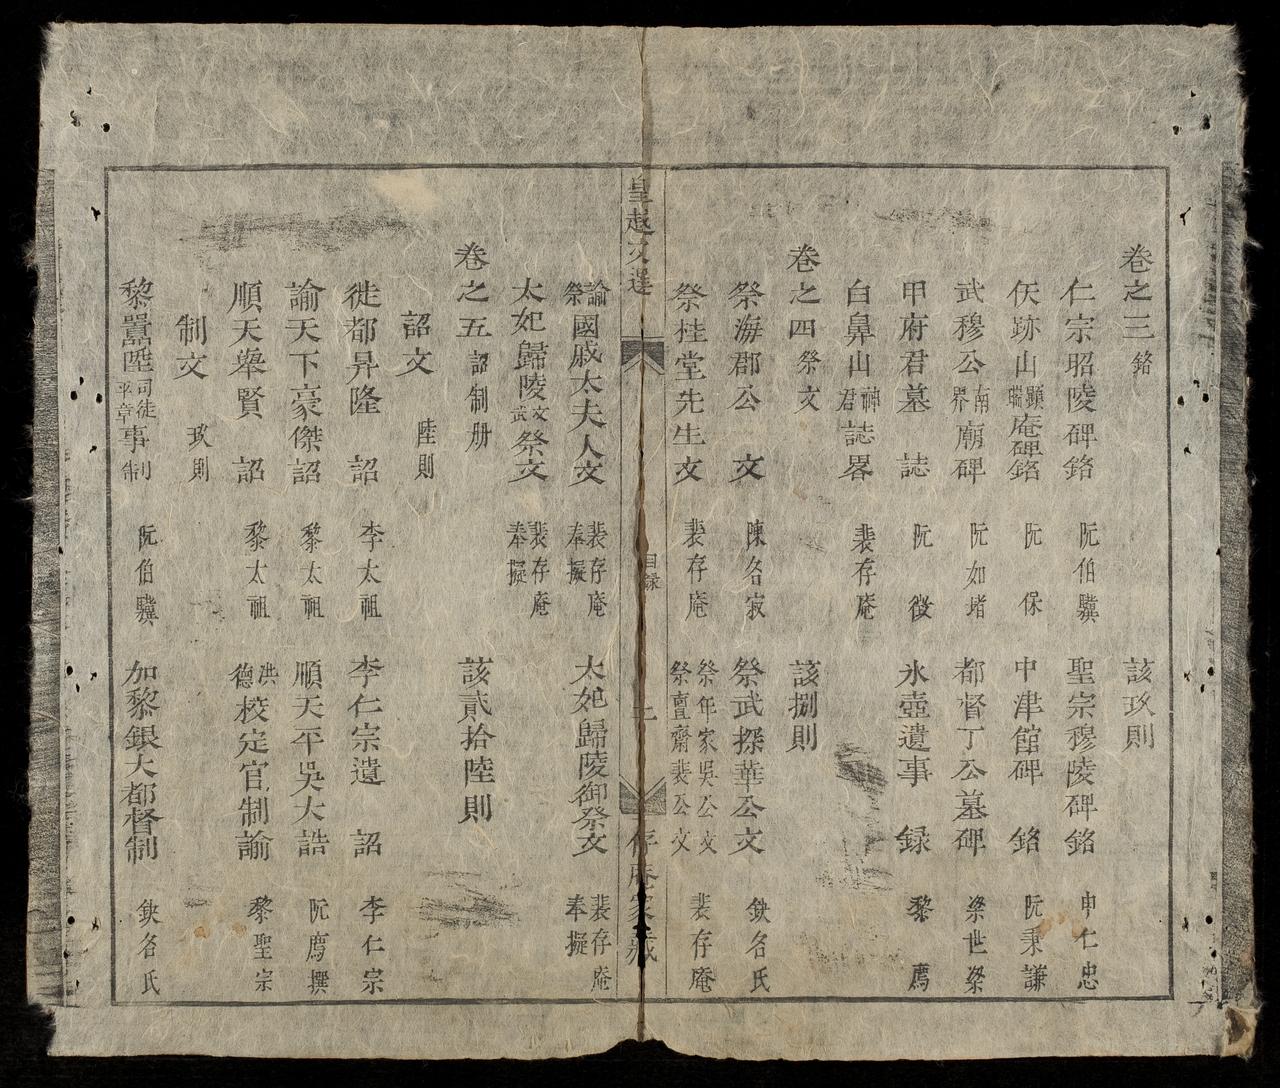 卷之三 銘 該玖則
仁宗昭陵碑銘 阮伯驥 聖宗穆陵碑銘 申仁忠
武穆公南界廟碑 阮如堵 都督丁公墓碑 梁世榮
仸跡山顯瑞庵碑銘 阮保 中津館碑銘 阮秉謙
甲府君墓誌 阮徵 氷壺遺事錄 黎廌
白鼻山神君誌畧 裴存庵
卷之四 祭文 該捌則
祭海郡公文 陳名寀 祭武探華公文 缺名氏
祭桂堂先生文 裴存庵 祭年家吳公文 祭亶齋裴公文 裴存庵
皇越文選 目録 上 存庵家藏
諭祭國戚太夫人文 裴存庵奉擬 太妃歸陵御祭文 裴存庵奉擬
太妃歸陵文武祭文 裴存庵奉擬
卷之五 詔制册 該貳拾陸則
詔文 陸則
徙都昇隆詔 李太祖 李仁宗遺詔 李仁宗
諭天下豪傑詔 黎太祖 順天平吳大誥 阮廌撰
順天舉賢詔 黎太祖 洪德校定官制諭 黎聖宗
制文 玖則
黎𡅏陞司徒平章事制 阮伯驥 加黎銀大都督制 缺名氏